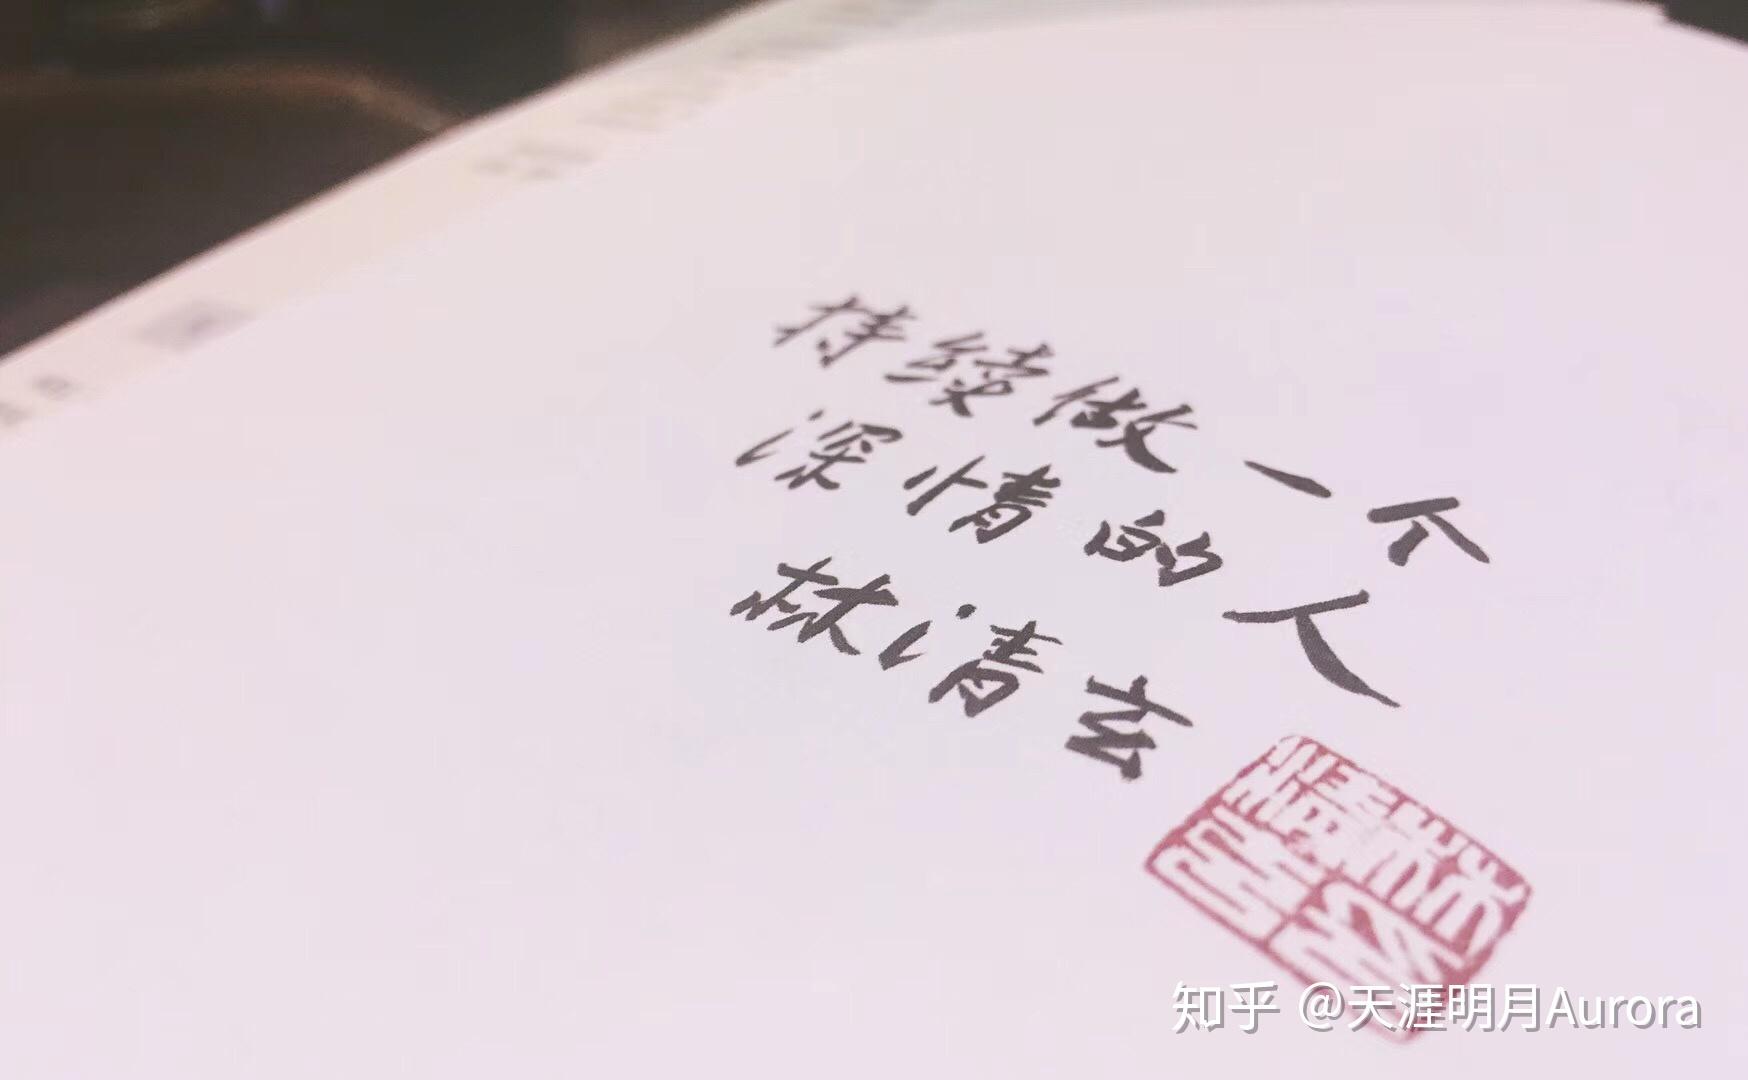 持续做一个
深情的人
林清玄
知乎 @天涯明月Aurora